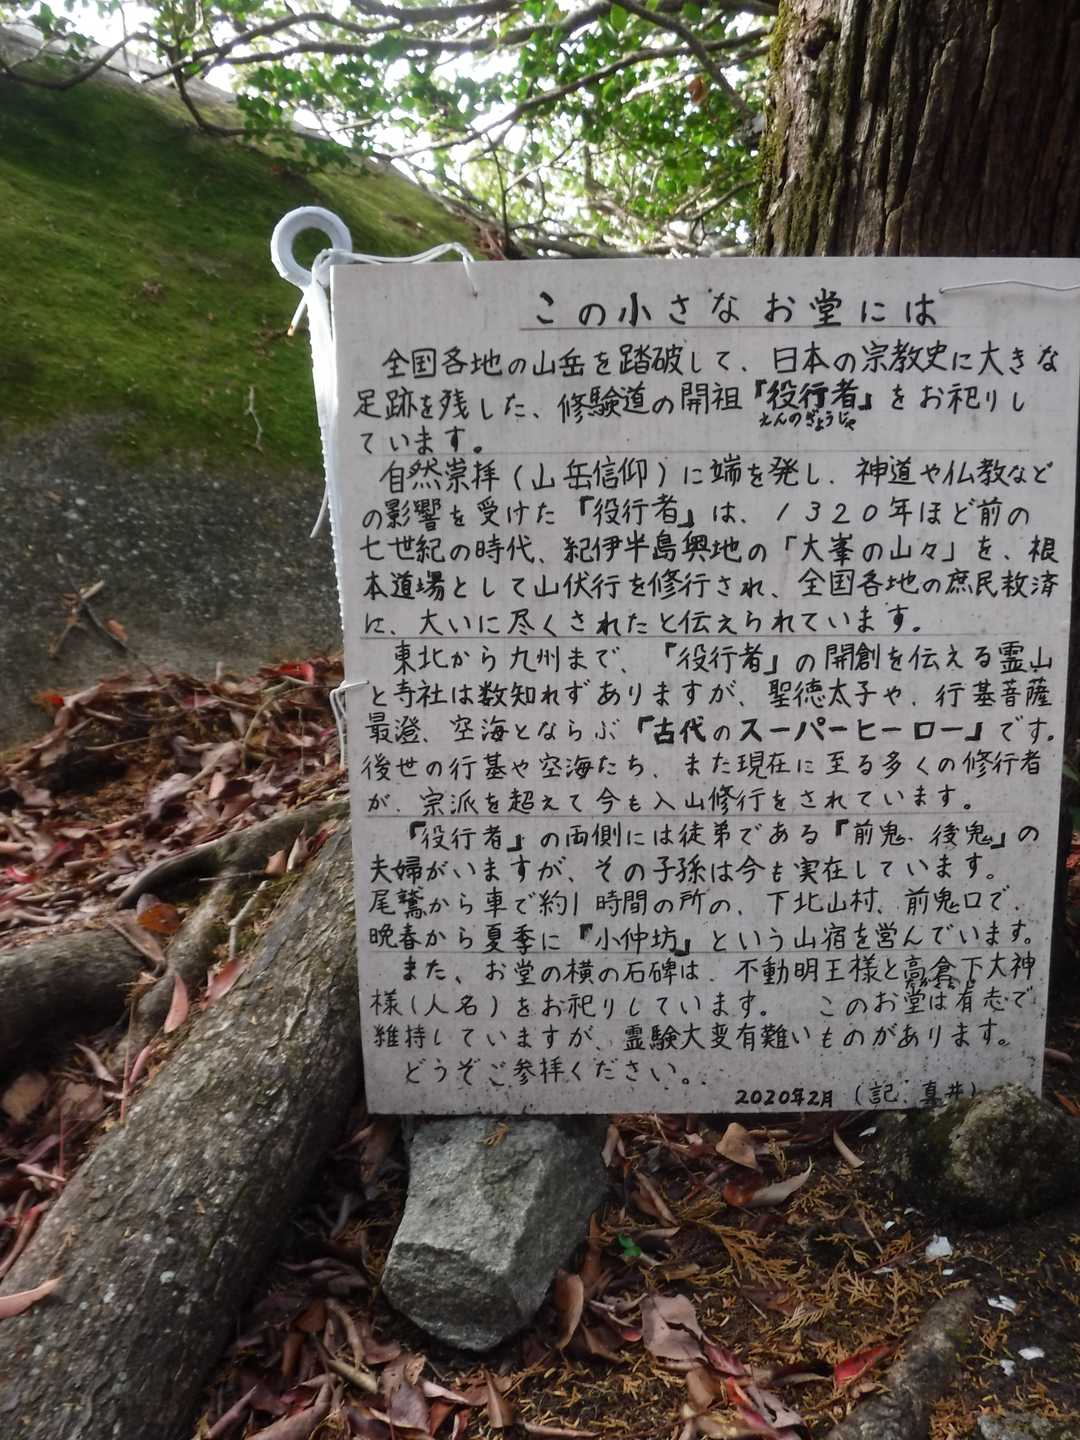 この小さなお堂には
全国各地の山岳を踏破して、日本の宗教史に大きな
足跡を残した、修験道の開祖『役行者』をお祀りし
えんのぎょうじゃ
ています。
自然崇拝(山岳信仰)に端を発し、神道や仏教など
の影響を受けた『役行者』は、1320年ほど前の
七世紀の時代、紀伊半島奥地の「大峯の山々」を、根
本道場として山伏行を修行され、全国各地の庶民救済
に、大いに尽くされたと伝えられています。
東北から九州まで、『役行者』の開創を伝える霊山
と寺社は数知れずありますが、聖徳太子や、行基菩薩
最澄、空海とならぶ『古代のスーパーヒーロー』です。
後世の行基や空海たち、また現在に至る多くの修行者
が、宗派を超えて今も入山修行をされています。
『役行者』の両側には徒弟である『前鬼、後鬼』の
夫婦がいますが、その子孫は今も実在しています。
尾鷲から車で約1時間の所の、下北山村、前鬼口で、
晩春から夏季に『小仲坊』という山宿を営んでいます。
また、お堂の横の石碑は、不動明王様と高倉下大神
様(人名)をお祀りしています。 このお堂は有志で
維持していますが、霊験大変有難いものがあります。
どうぞご参拝ください。
2020年2月 (記:真井)